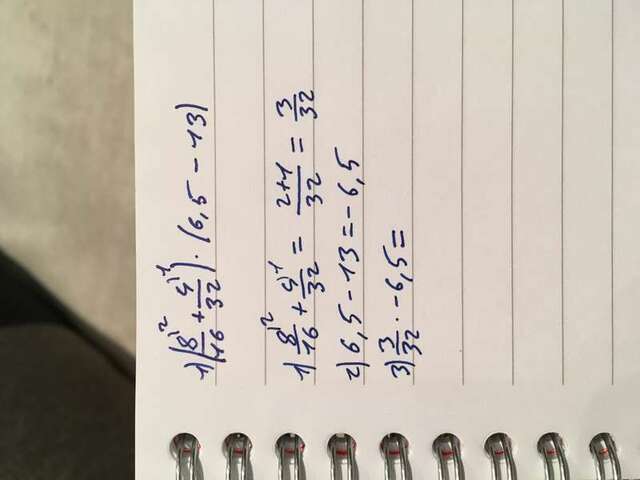 1) (8^{\2}/16 + 4^{\1}/32) · (6,5 - 13)
1) 8^{\2}/16 + 4^{\1}/32 = 2+1/32 = 3/32
2) 6,5 - 13 = -6,5
3) 3/32 · -6,5 =